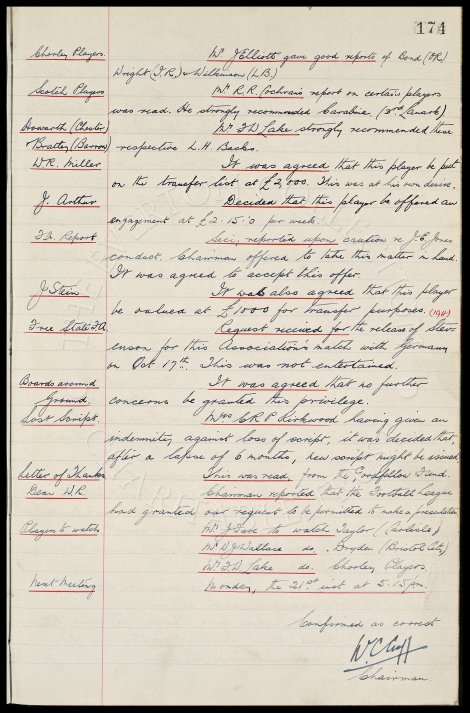 174
Chorley Players. Mr J Elliott gave good reports of Bond (O.R)
Wright (I.R) & Wilkinson (L.B)
Scotch Players Mr R.R. Cochrans report on certain players
was read. He strongly recommended Carabine. (3rd Lanark)
Howarth (Chester) Mr T.D Lake strongly recommended these
& Bratley (Barrow) respective L.H. Backs.
W.R. Miller It was agreed that this player be put
on the transfer list at £2,000. This was at his own desire.
J. Arthur Decided that this player be offered an
engagement at £2.15.0 per week.
F.A. Report Secy reported upon caution re J.E. Jones
conduct. Chairman offered to take this matter in hand.
It was agreed to accept this offer.
J Stein It was also agreed that this player
be valued at £1000 for transfer purposes. (194)
Free State F.A. Request received for the release of Stev-
enson for this Association's match with Germany
on Oct 17th. This was not entertained.
Boards around It was agreed that no further
Ground. concerns be granted this privilege.
Lost Script. Mrs C.R.P Kirkwood having given an
indemnity, against loss of script, it was decided that,
after a lapse of 6 months, new script might be issued
Letter of Thanks This was read, from the Gordofillon Fund.
Dean W.R. Chairman reported that the Football League
had granted our request to be permitted to make a presentation
Players to watch Mr J Fare to watch Taylor (Carlisle)
Mr W J Wallace do. Bryden (Bristol City)
Mr T.D. Lake do. Chorley Players.
Next Meeting Monday, the 21st inst at 5.15pm.
Confirmed as correct
W.C. Cuff
Chairman.